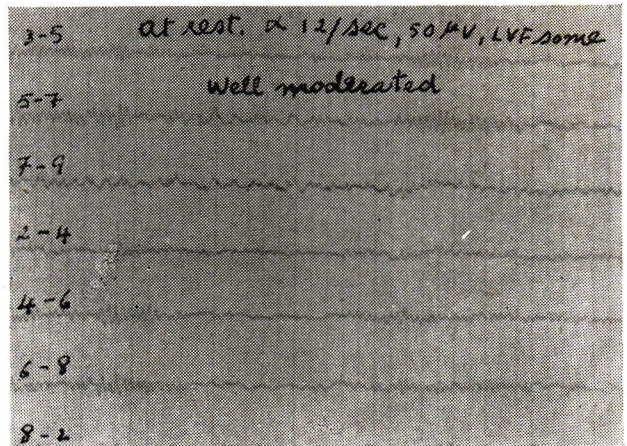 3-5 at rest. α 12/sec, 50 μV, LVF some
well moderated
5-7
7-9
2-4
4-6
6-8
8-2